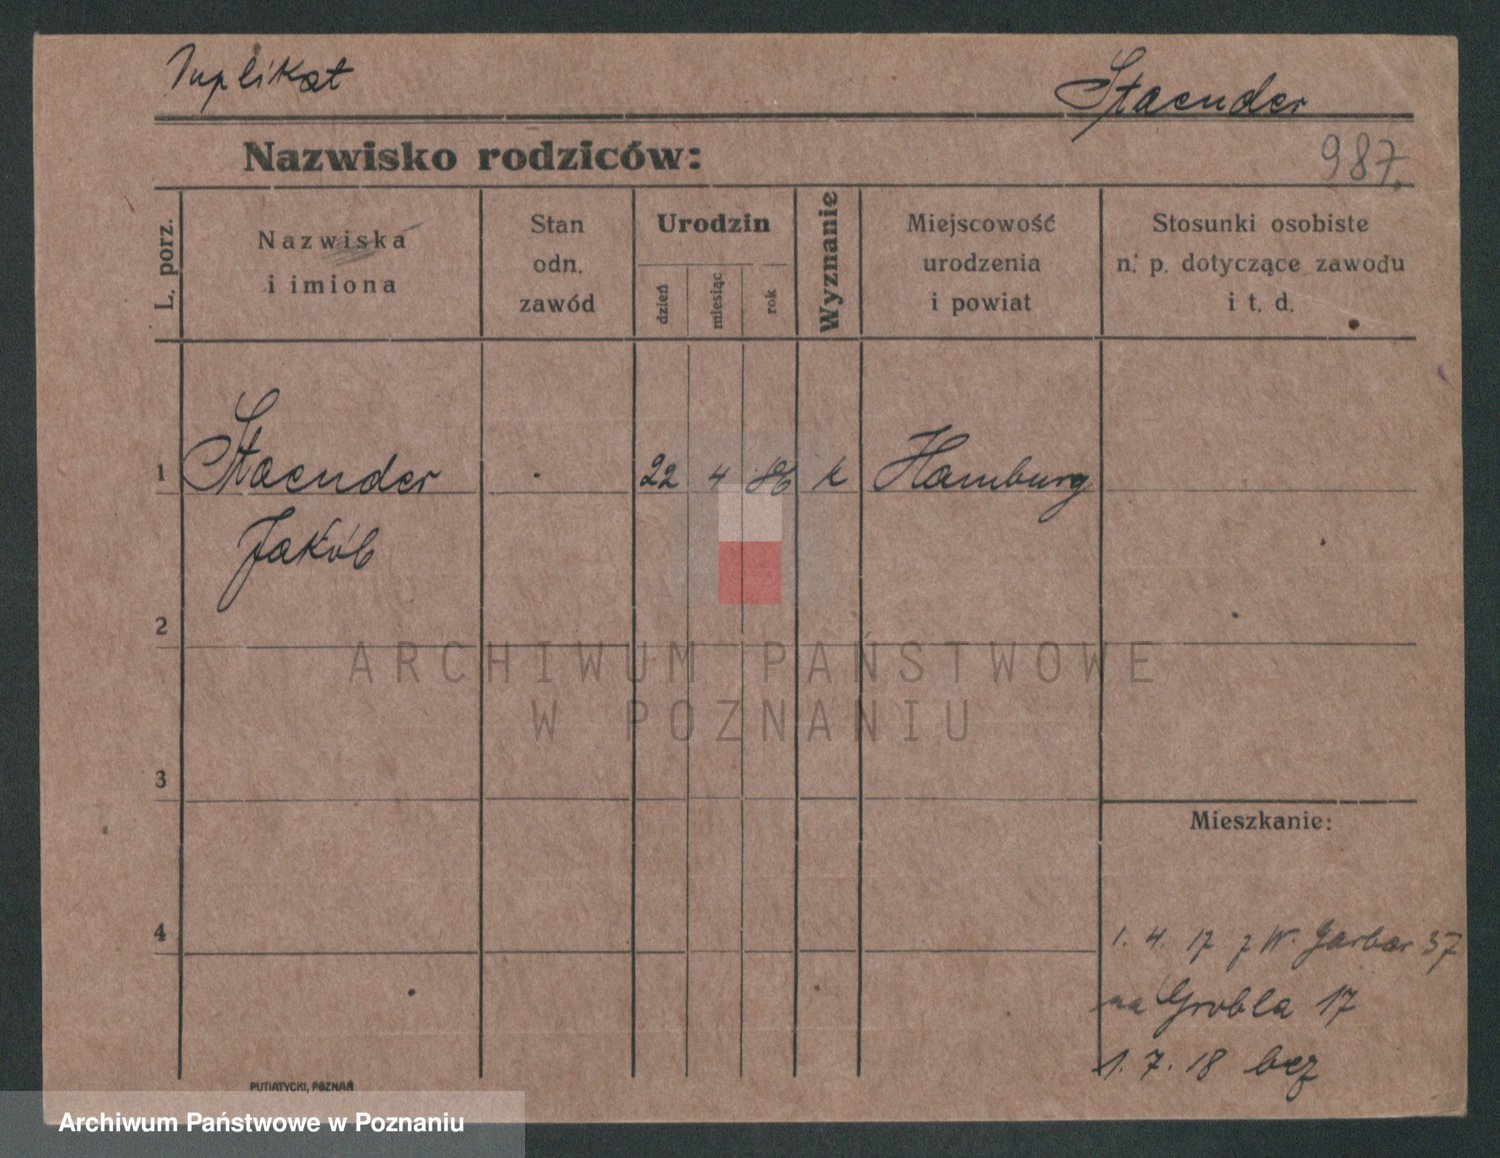 Duplikat
Staender
Nazwisko rodziców:
987.
L. porz.
Nazwiska
i imiona
Stan
odn.
zawód
Urodzin
dzień
miesiąc
rok
Wyznanie
Miejscowość
urodzenia
i powiat
Stosunki osobiste
n. p. dotyczące zawodu
i t. d.
1 Staender 22 4 86 k Hamburg
Jakób
2
ARCHIWUM PAŃSTWOWE
W POZNANIU
3
Mieszkanie:
4
1. 4. 17 z W. Garbar 37
na Grobla 17
1. 7. 18 bez
PUTIATYCKI, POZNAŃ
Archiwum Państwowe w Poznaniu